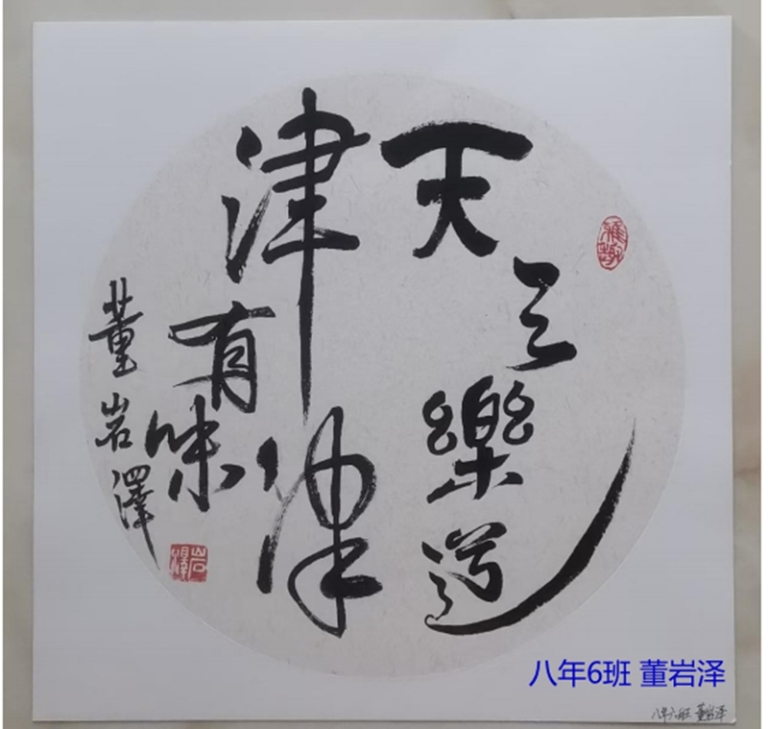 天之樂道
津津
有味
董岩澤
八年6班 董岩泽
八年六班 董岩泽